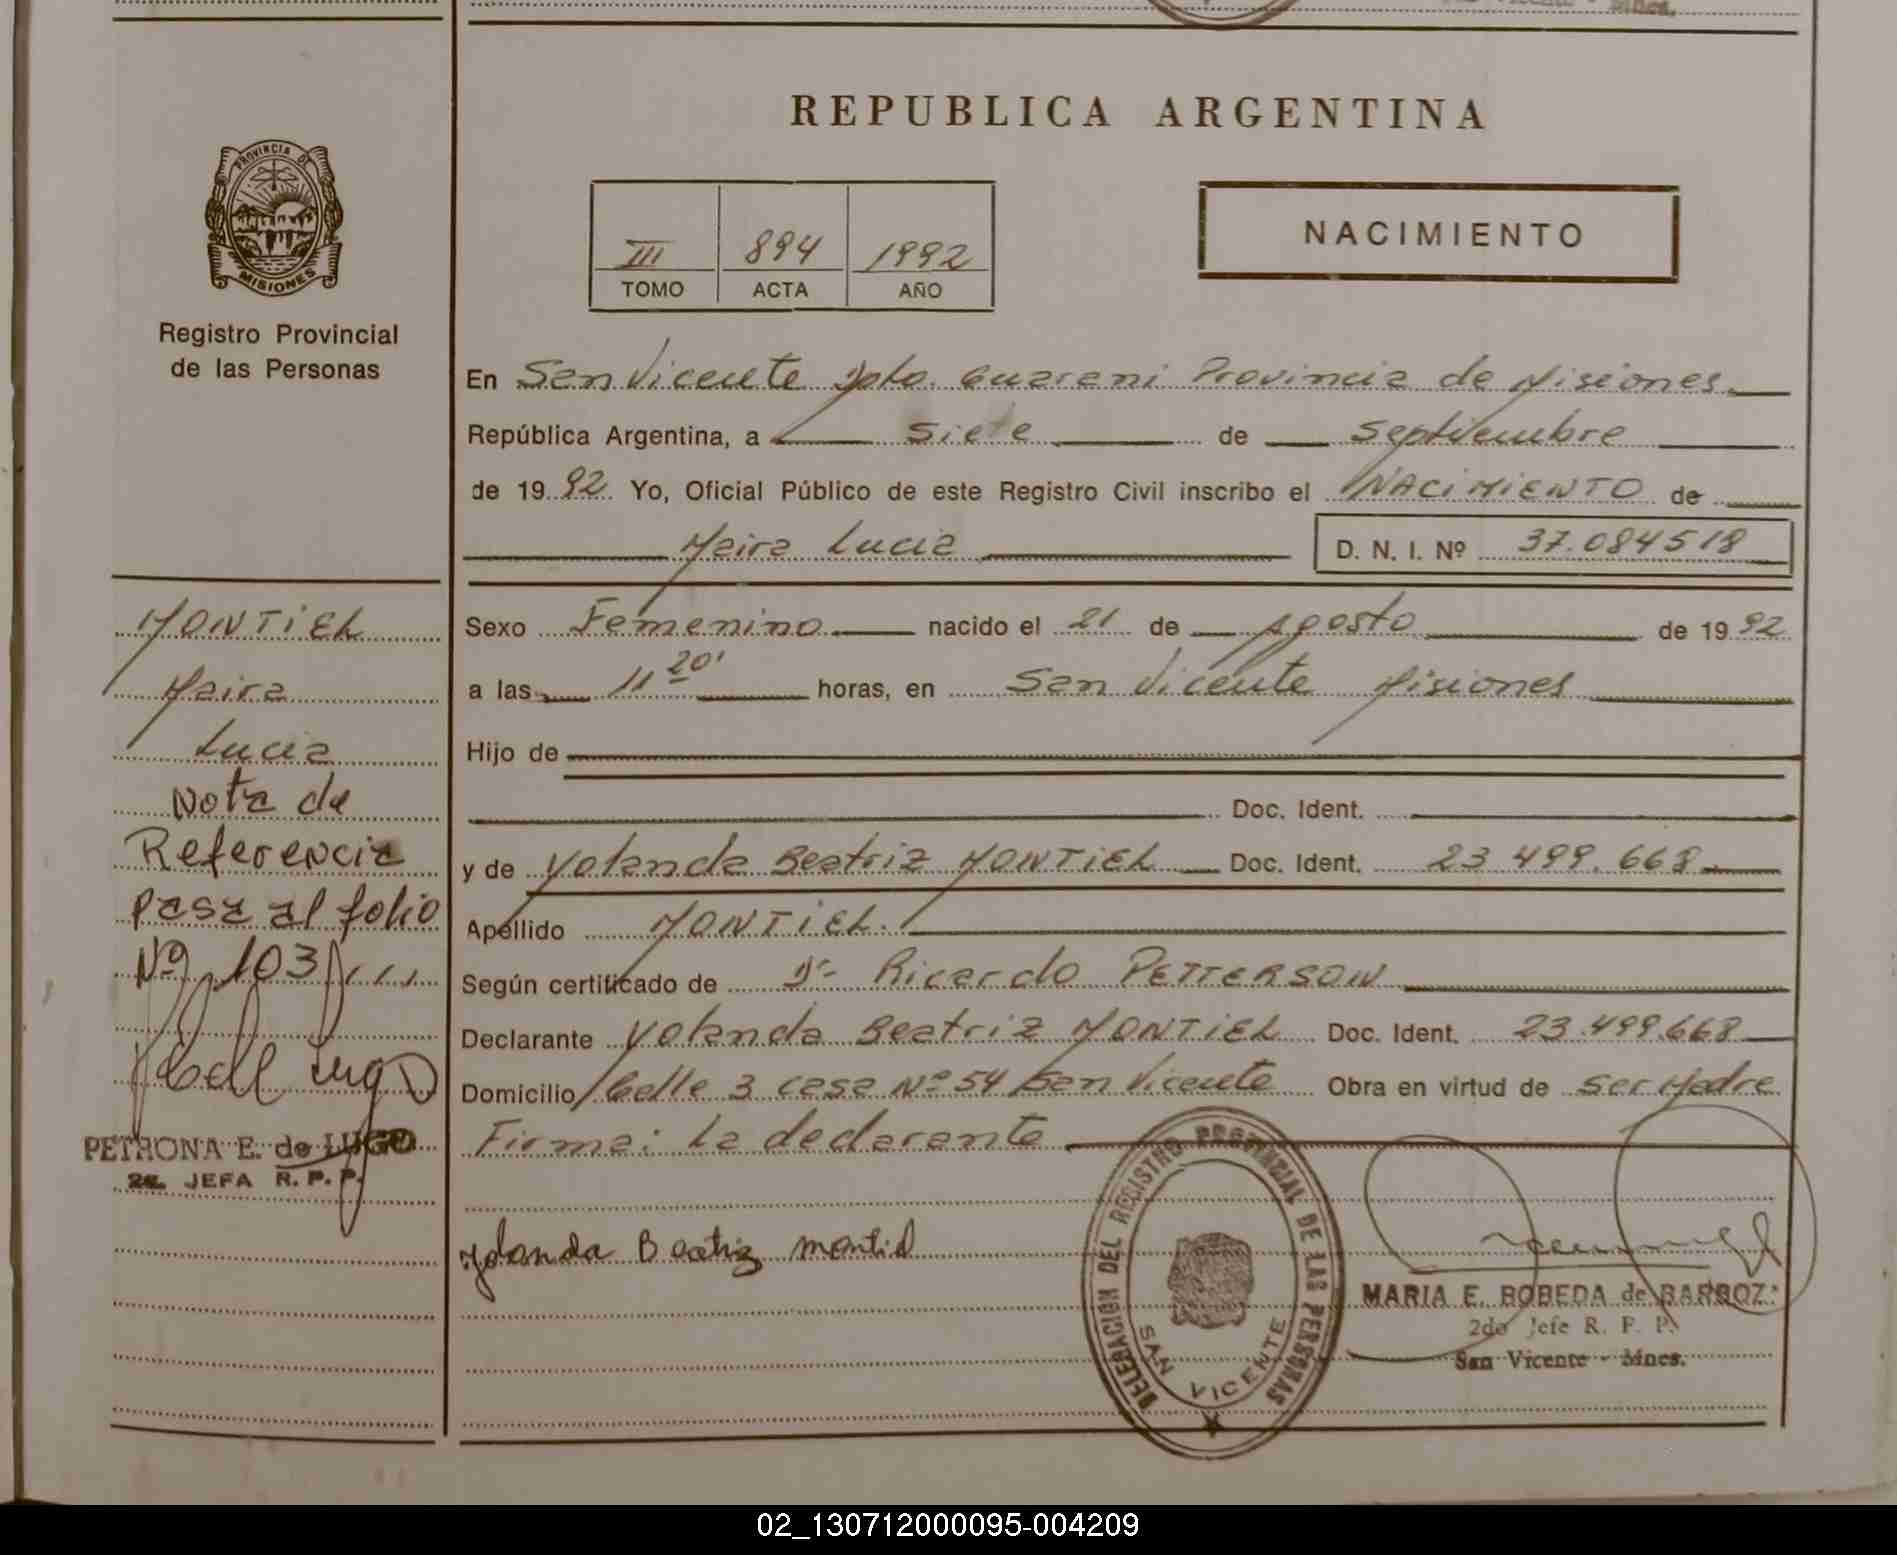 REPUBLICA ARGENTINA
PROVINCIA DE
MISIONES
Registro Provincial
de las Personas
III 894 1992
TOMO ACTA AÑO
NACIMIENTO
En San Vicente Dpto. Guarani Provincia de Misiones.
República Argentina, a siete de Septiembre
de 1992 Yo, Oficial Público de este Registro Civil inscribo el NACIMIENTO de
Maira Lucia D. N. I. Nº 37.084518
Sexo Femenino nacido el 21 de Agosto de 1992
a las 11 20' horas, en San Vicente Misiones
Hijo de
Doc. Ident.
y de Yolanda Beatriz MONTIEL Doc. Ident. 23 499.668
Apellido MONTIEL.
Según certificado de Dr Ricardo PETTERSON
Declarante Yolanda Beatriz MONTIEL Doc. Ident. 23.499.668
Domicilio Calle 3 casa Nº 54 San Vicente Obra en virtud de Ser Madre
Firma: La declarante
Yolanda Beatriz montiel
DELEGACION DEL REGISTRO PROVINCIAL DE LAS PERSONAS
SAN VICENTE
MARIA E. BOBEDA de BARBOZA
2do Jefe R. P. P.
San Vicente - Mnes.
MONTIEL
Maira
Lucia
Nota de
Referencia
Pasa al folio
Nº 103
PETRONA E. de LUGO
2da. JEFA R. P. P.
02_130712000095-004209